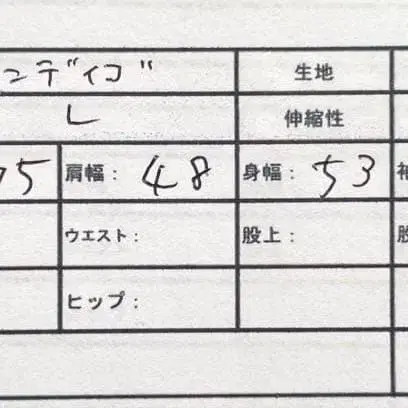 ンディゴ 生地
L 伸縮性
75 肩幅： 48 身幅： 53
ウエスト： 股上：
ヒップ：